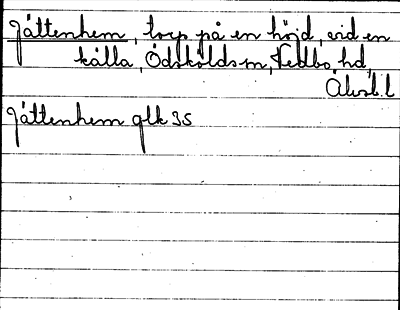 Jättenhem, torp på en höjd, vid en
källa, Ödskölds sn, Vedbo hd,
Älvsb. l
Jättenhem glk 35